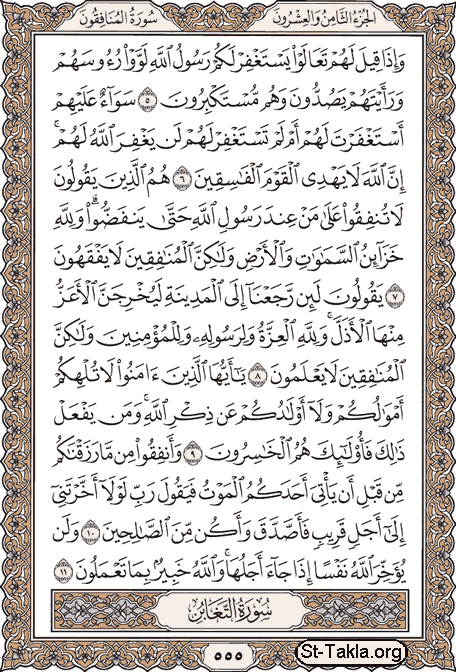 الجُزْءُ الثَّامِنُ وَالعِشْرُونَ
سُورَةُ المُنَافِقُونَ
وَإِذَا قِيلَ لَهُمْ تَعَالَوْا۟ يَسْتَغْفِرْ لَكُمْ رَسُولُ ٱللَّهِ لَوَّوْا۟ رُءُوسَهُمْ
وَرَأَيْتَهُمْ يَصُدُّونَ وَهُم مُّسْتَكْبِرُونَ ٥ سَوَآءٌ عَلَيْهِمْ
أَسْتَغْفَرْتَ لَهُمْ أَمْ لَمْ تَسْتَغْفِرْ لَهُمْ لَن يَغْفِرَ ٱللَّهُ لَهُمْ ۚ
إِنَّ ٱللَّهَ لَا يَهْدِى ٱلْقَوْمَ ٱلْفَـٰسِقِينَ ٦ هُمُ ٱلَّذِينَ يَقُولُونَ
لَا تُنفِقُوا۟ عَلَىٰ مَنْ عِندَ رَسُولِ ٱللَّهِ حَتَّىٰ يَنفَضُّوا۟ ۗ وَلِلَّهِ
خَزَآئِنُ ٱلسَّمَـٰوَٰتِ وَٱلْأَرْضِ وَلَـٰكِنَّ ٱلْمُنَـٰفِقِينَ لَا يَفْقَهُونَ
٧ يَقُولُونَ لَئِن رَّجَعْنَآ إِلَى ٱلْمَدِينَةِ لَيُخْرِجَنَّ ٱلْأَعَزُّ
مِنْهَا ٱلْأَذَلَّ ۚ وَلِلَّهِ ٱلْعِزَّةُ وَلِرَسُولِهِۦ وَلِلْمُؤْمِنِينَ وَلَـٰكِنَّ
ٱلْمُنَـٰفِقِينَ لَا يَعْلَمُونَ ٨ يَـٰٓأَيُّهَا ٱلَّذِينَ ءَامَنُوا۟ لَا تُلْهِكُمْ
أَمْوَٰلُكُمْ وَلَآ أَوْلَـٰدُكُمْ عَن ذِكْرِ ٱللَّهِ ۚ وَمَن يَفْعَلْ
ذَٰلِكَ فَأُو۟لَـٰٓئِكَ هُمُ ٱلْخَـٰسِرُونَ ٩ وَأَنفِقُوا۟ مِن مَّا رَزَقْنَـٰكُم
مِّن قَبْلِ أَن يَأْتِىَ أَحَدَكُمُ ٱلْمَوْتُ فَيَقُولَ رَبِّ لَوْلَآ أَخَّرْتَنِىٓ
إِلَىٰٓ أَجَلٍ قَرِيبٍ فَأَصَّدَّقَ وَأَكُن مِّنَ ٱلصَّـٰلِحِينَ ١٠ وَلَن
يُؤَخِّرَ ٱللَّهُ نَفْسًا إِذَا جَآءَ أَجَلُهَا ۚ وَٱللَّهُ خَبِيرٌۢ بِمَا تَعْمَلُونَ ١١
سُورَةُ التَّغَابُنِ
٥٥٥
St-Takla.org